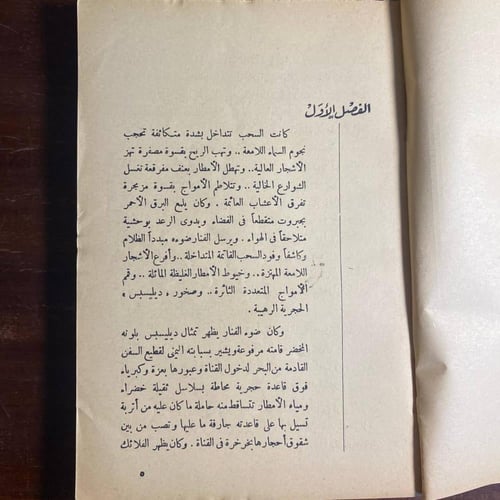 الفصل الأول
كانت السحب تتداخل بشدة متكاثفة تحجب
نجوم السماء اللامعة .. وتهب الريح بقسوة مصفرة تهز
الأشجار العالية .. وتهطل الأمطار بعنف مفرقعة تغسل
الشوارع الخالية .. وتتلاطم الأمواج بقسوة مزمجرة
تفرق الأعشاب العائمة . وكان يلمع البرق الأحمر
بجبروت متقطعاً فى الفضاء ويدوى الرعد بوحشية
متلاحقاً فى الهواء . ويرسل الفنار ضوءه مبدداً الظلام
وكاشفاً وفود السحب القاتمة المتداخلة .. وأفرع الأشجار
اللامعة المهتزة .. وخيوط الأمطار الغليظة المائلة .. وقمم
الأمواج المتعددة الثائرة .. وصخور « ديليسبس »
الحجرية الرهيبة .
وكان ضوء الفنار يظهر تمثال ديليسبس بلونه
المخضر قامته مرفوعة ويشير بسبابته اليمنى لقطيع السفن
القادمة من البحر لدخول القناة وعبورها بعزة وكبرياء
فوق قاعدة حجرية محاطة بسلاسل ثقيلة خضراء
ومياه الأمطار تتساقط منه حاملة ما كان عليه من أتربة
تسيل بها على قاعدته جارفة ما عليها وتصب من بين
شقوق أحجارها بخرخرة فى القناة . وكان يظهر الفلائك
٥